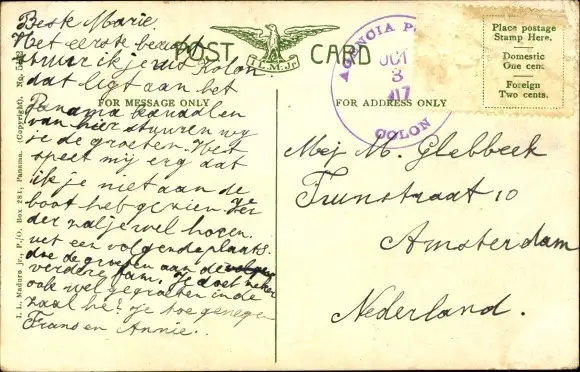 Beste Marie
Het eerste bericht
stuur ik je uit Kolon
dat ligt aan het
Panama kanaal en
van hier stuuren wy
je de groeten. Het
speet mij erg dat
ik je niet aan de
boot heb gezien. Ver
der zal je wel hooren
uit een volgende plaats.
doe de groeten aan de
verdere fam. Je doet
ook wel gegroeten in de
zaal he? Je toegenegen
Frans en Annie.
POST CARD
I.L.M.Jr.
FOR MESSAGE ONLY
FOR ADDRESS ONLY
I. L. Maduro jr., P./O. Box 281, Panama. (Copyright). No.
AGENCIA P
OCT
3
07
COLON
Place postage
Stamp Here.
Domestic
One cent.
Foreign
Two cents.
Mej M. Glebbeek
Amsterdam
Nederland.